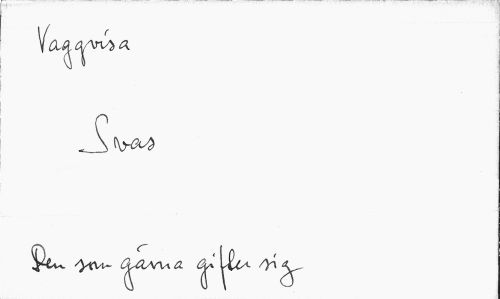 Vaggvisa
Svas
Den som gärna gifter sig